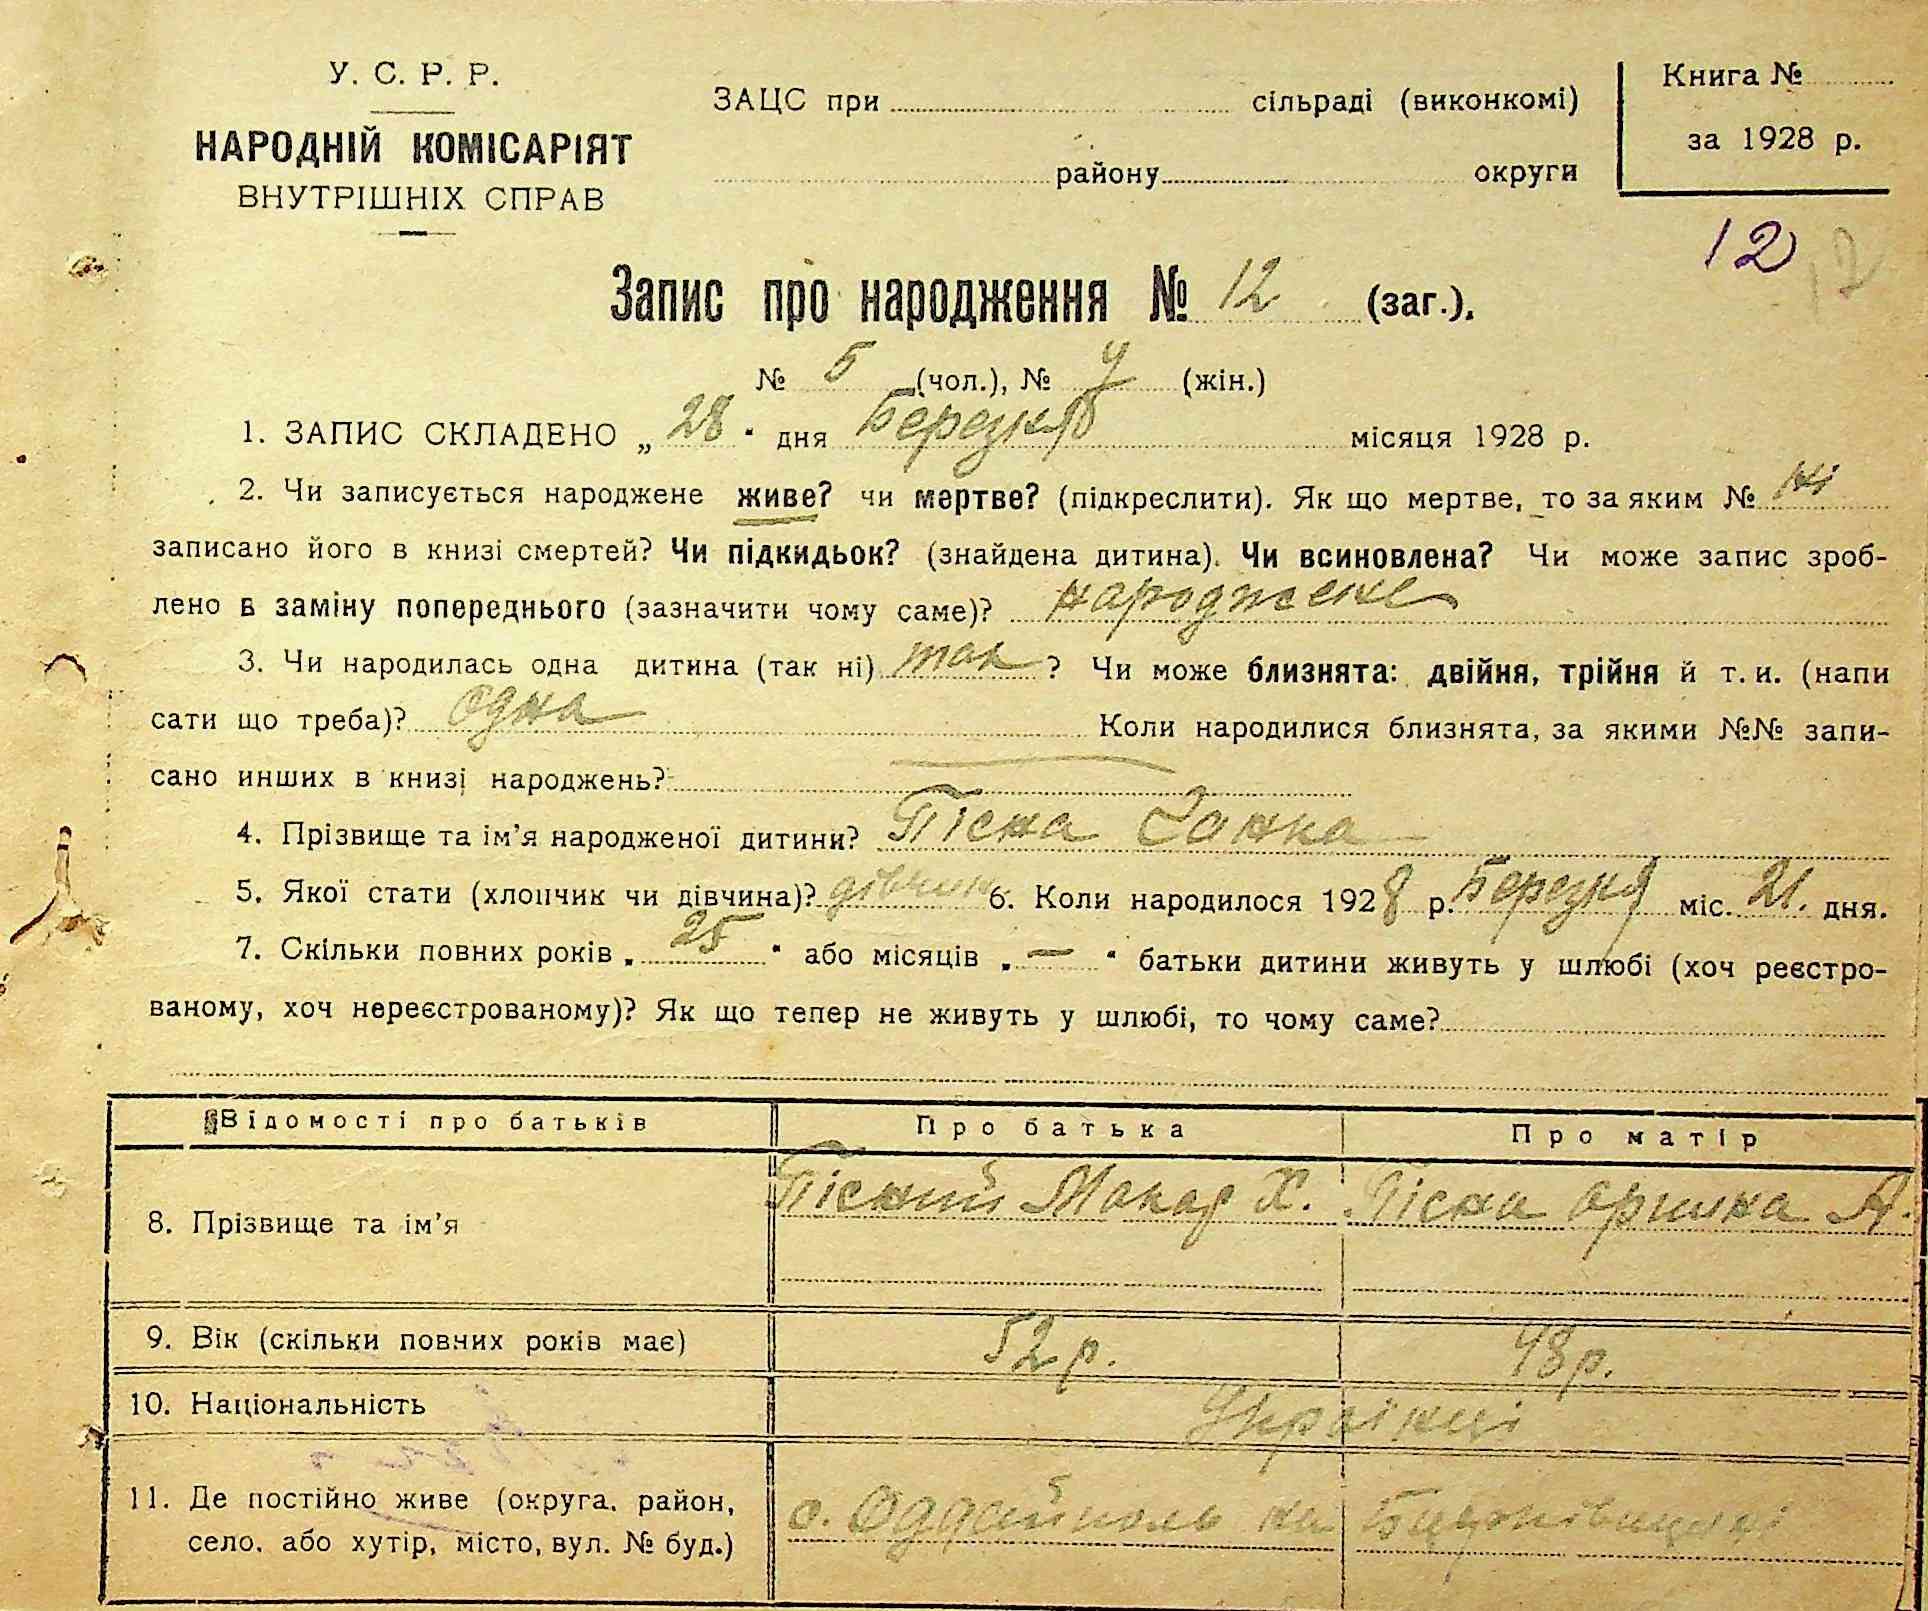 У. С. Р. Р.
НАРОДНІЙ КОМІСАРІЯТ
ВНУТРІШНІХ СПРАВ
ЗАЦС при сільраді (виконкомі)
району округи
Книга №
за 1928 р.
12 12
Запис про народження № 12 (заг.).
№ 5 (чол.), № 7 (жін.)
1. ЗАПИС СКЛАДЕНО „ 28 " дня Березня місяця 1928 р.
2. Чи записується народжене живе? чи мертве? (підкреслити). Як що мертве, то за яким № ні
записано його в книзі смертей? Чи підкидьок? (знайдена дитина). Чи всиновлена? Чи може запис зроб-
лено в заміну попереднього (зазначити чому саме)? народжене
3. Чи народилась одна дитина (так ні) так ? Чи може близнята: двійня, трійня й т. и. (напи
сати що треба)? одна Коли народилися близнята, за якими №№ запи-
сано инших в книзі народжень? —
4. Прізвище та ім’я народженої дитини? Пісна Ганна
5. Якої стати (хлопчик чи дівчина)? дівчина 6. Коли народилося 1928 р. Березня міс. 21. дня.
7. Скільки повних років „ 25 " або місяців „ — " батьки дитини живуть у шлюбі (хоч реєстро-
ваному, хоч нереєстрованому)? Як що тепер не живуть у шлюбі, то чому саме?
Відомості про батьків Про батька Про матір
8. Прізвище та ім’я Пісний Макар Х. Пісна Оришка А.
9. Вік (скільки повних років має) 52 р. 43 р.
10. Національність Українці
11. Де постійно живе (округа, район,
село, або хутір, місто, вул. № буд.) с. Оддайполь на